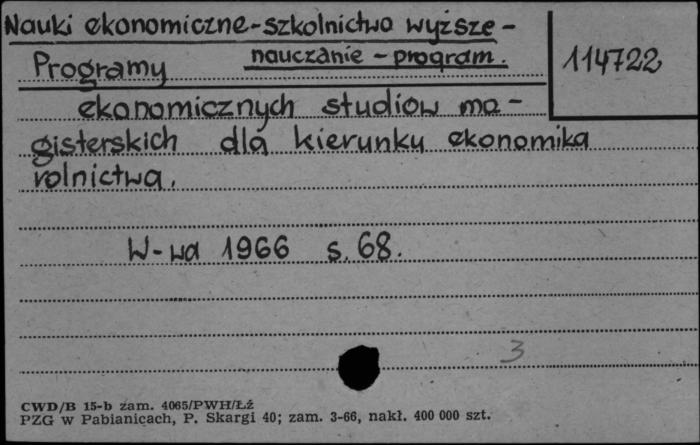 Nauki ekonomiczne-szkolnictwo wyższe-
nauczanie-program.
114722
Programy
ekonomicznych studiów ma-
gisterskich dla kierunku ekonomika
rolnictwa.
W-wa 1966 s. 68.
3
CWD/B 15-b zam. 4065/PWH/Łź
PZG w Pabianicach, P. Skargi 40; zam. 3-66, nakł. 400 000 szt.